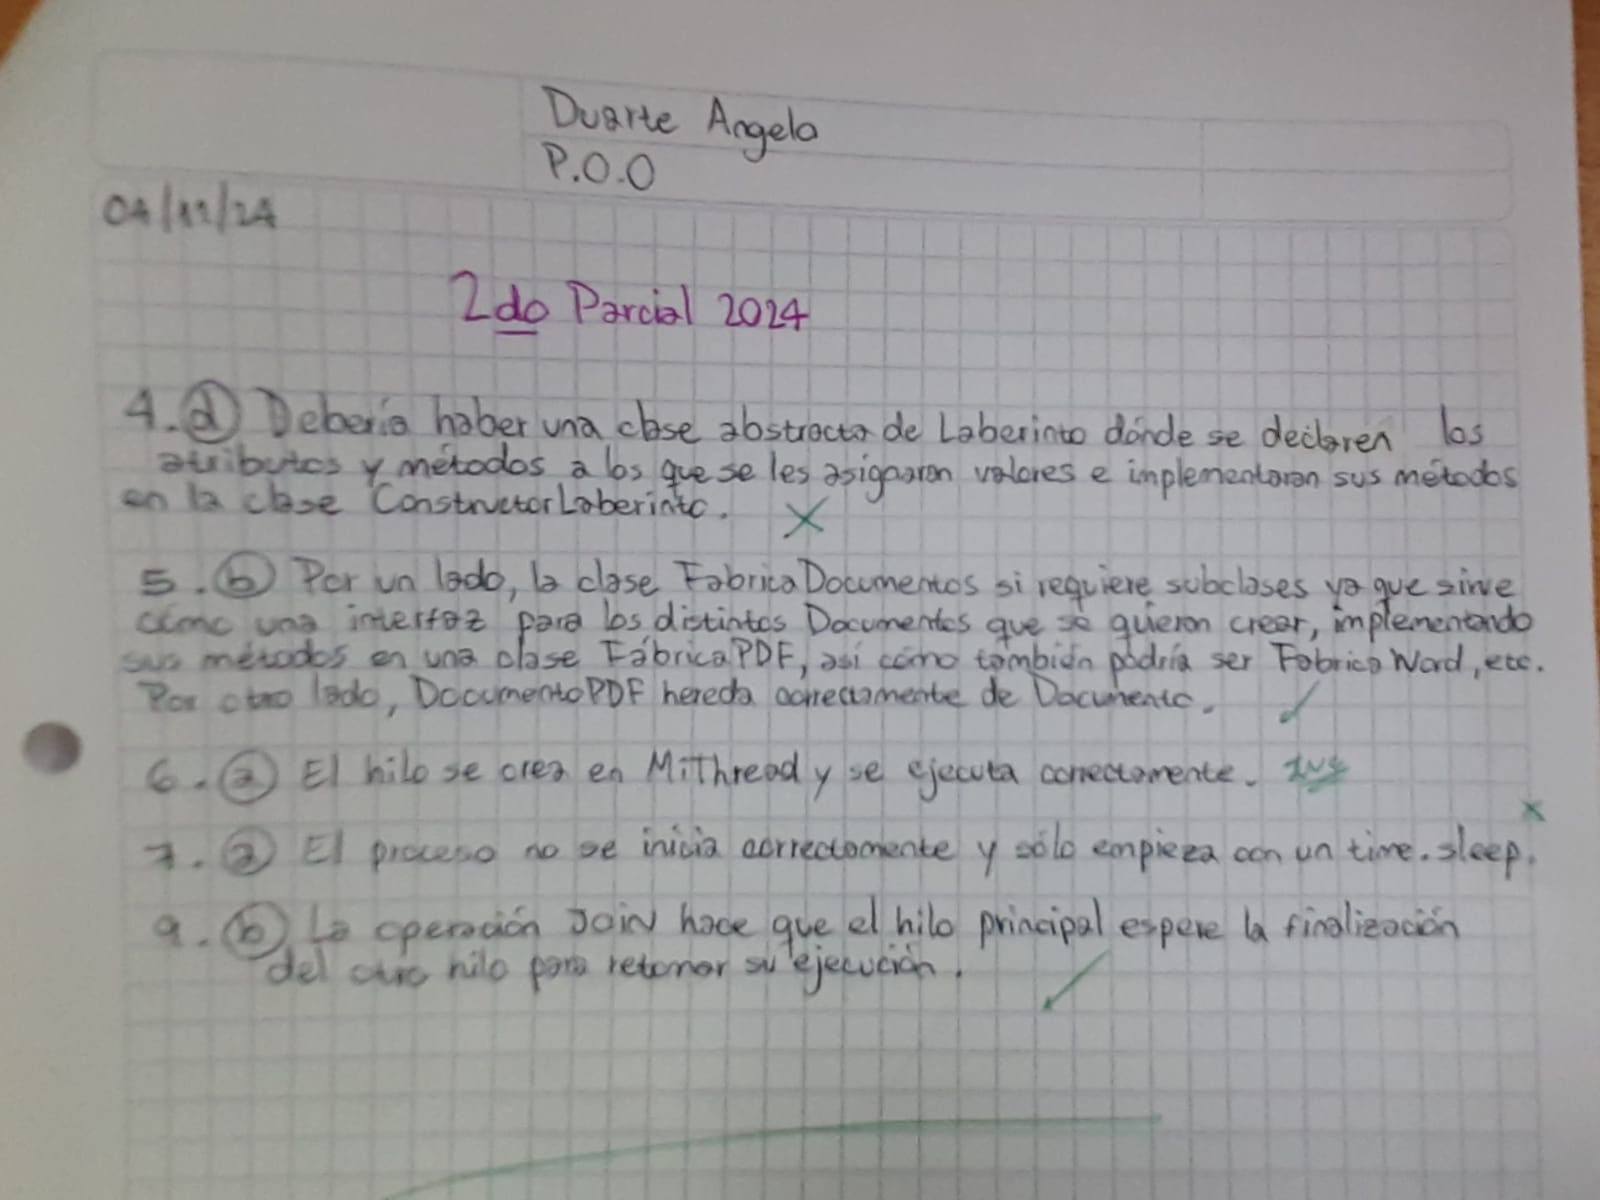 Duarte Angela
P.O.O
04/11/24
2do Parcial 2024
4. d) Debería haber una clase abstracta de Laberinto dónde se declaren los
atributos y métodos a los que se les asignaran valores e implementaran sus métodos
en la clase ConstructorLaberinto. X
5. b) Por un lado, la clase FabricaDocumentos si requiere subclases ya que sirve
cómo una interfaz para los distintos Documentos que se quieran crear, implementando
sus métodos en una clase FábricaPDF, así cómo también podría ser FabricaWord, etc.
Por otro lado, DocumentoPDF hereda correctamente de Documento. ✓
6. a) El hilo se crea en MiThread y se ejecuta correctamente.
7. a) El proceso no se inicia correctamente y sólo empieza con un time.sleep. X
9. b) La operación JOIN hace que el hilo principal espere la finalización
del otro hilo para retomar su ejecución. ✓